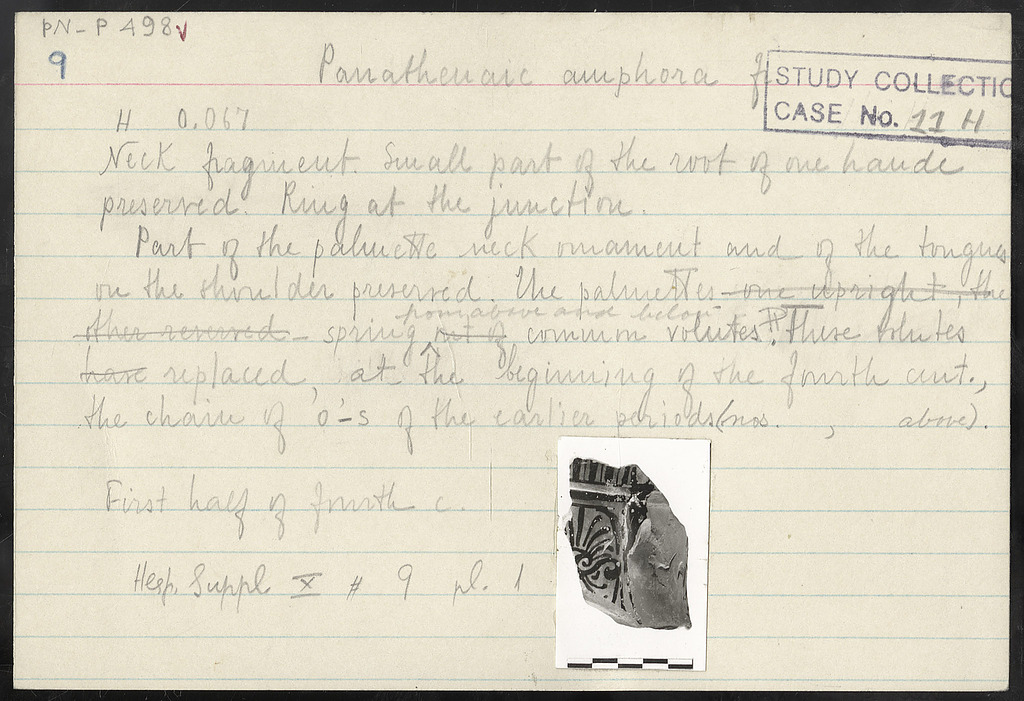 PN-P 498
9
Panathenaic amphora fr
STUDY COLLECTIO
CASE No. 11 H
H 0.067
Neck fragment. Small part of the root of one handle
preserved. Ring at the junction.
Part of the palmette neck ornament and of the tongues
on the shoulder preserved. The palmettes one upright, the
from above and below
other reversed - spring out of common volutes. These volutes
have replaced, at the beginning of the fourth cent.,
the chain of 'o'-s of the earlier periods (nos. , above).
First half of fourth c.
Hesp. Suppl. X # 9 pl. 1